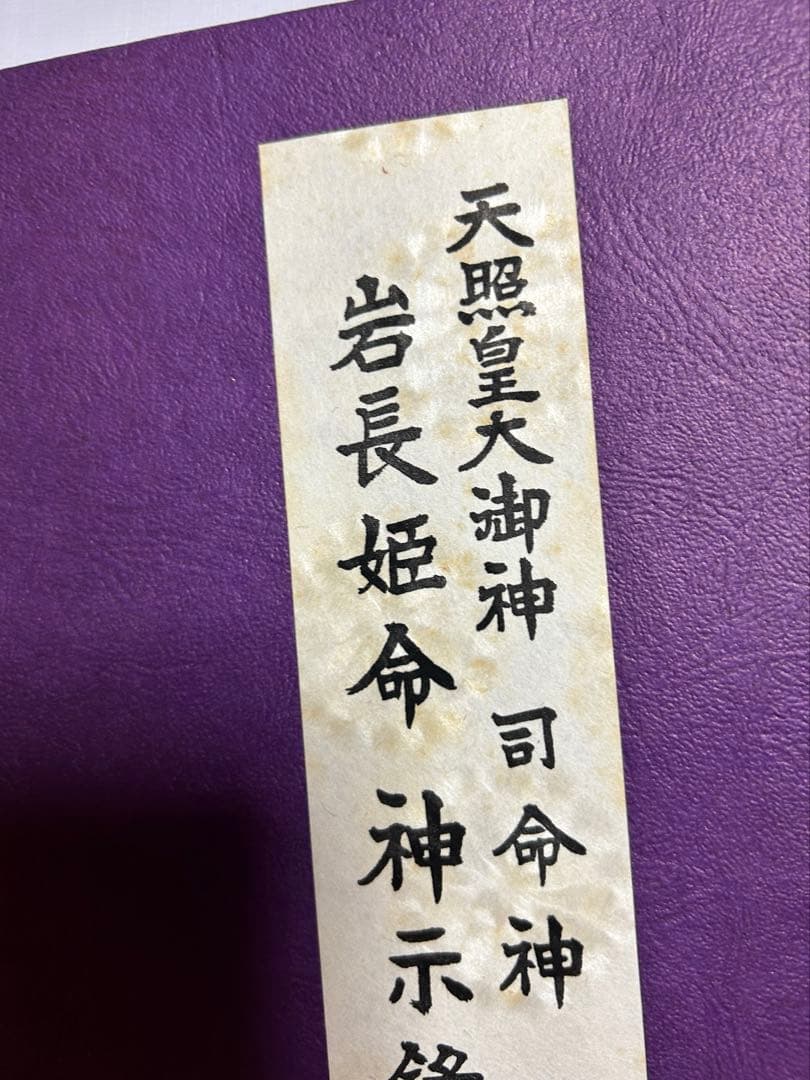 天照皇大御神 司命神
岩長姫命 神示